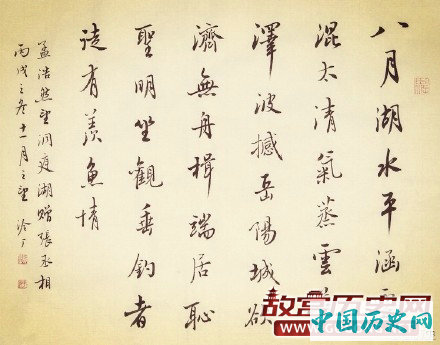 八月湖水平涵
混太清氣蒸雲
澤波撼岳陽城欲
濟無舟楫端居恥
聖明坐觀垂釣者
徒有羨魚情
孟浩然望洞庭湖贈張丞相
丙戌之冬十一月之望
故宫历史网
中国历史网